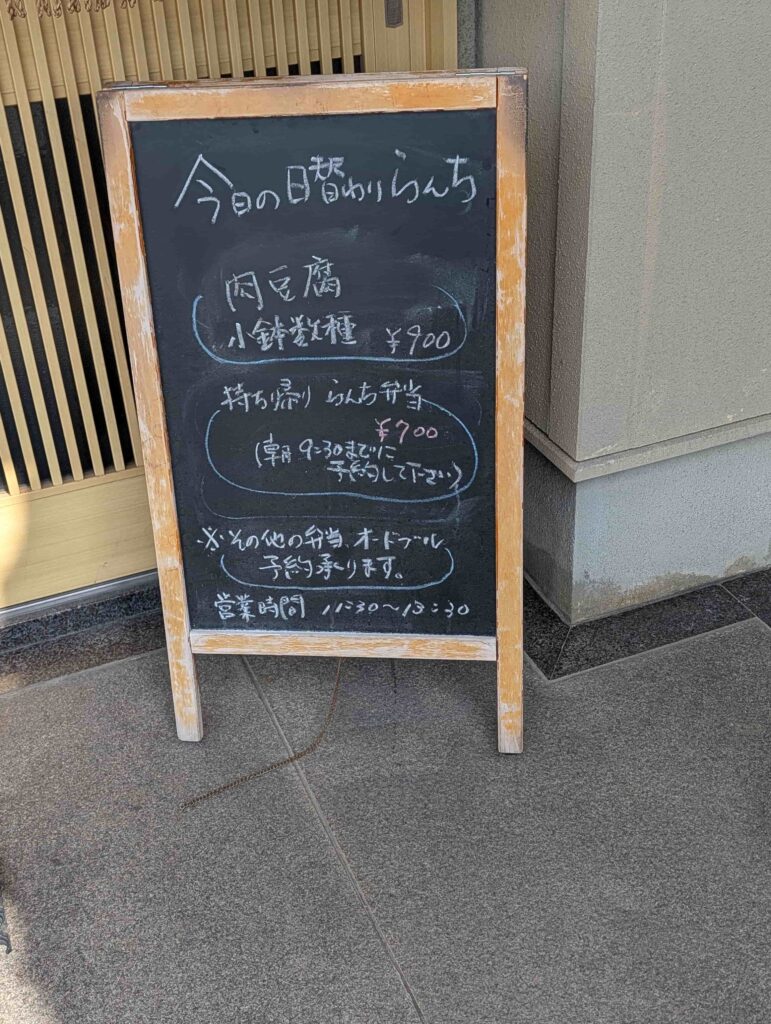 今日の日替わりらんち
肉豆腐
小鉢数種 ¥900
持ち帰り らんち弁当
¥700
(朝9:30までに
予約して下さい)
※その他の弁当、オードブル
予約承ります。
営業時間 11:30〜13:30